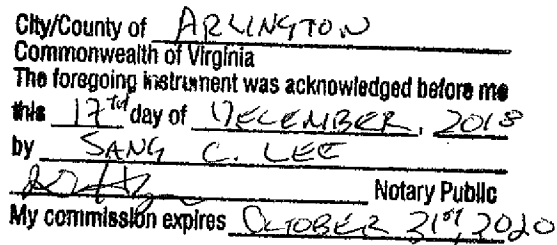 City/County of ARLINGTON
Commonwealth of Virginia
The foregoing instrument was acknowledged before me
this 17th day of DECEMBER, 2018
by SANG C. LEE
Notary Public
My commission expires OCTOBER 31st, 2020